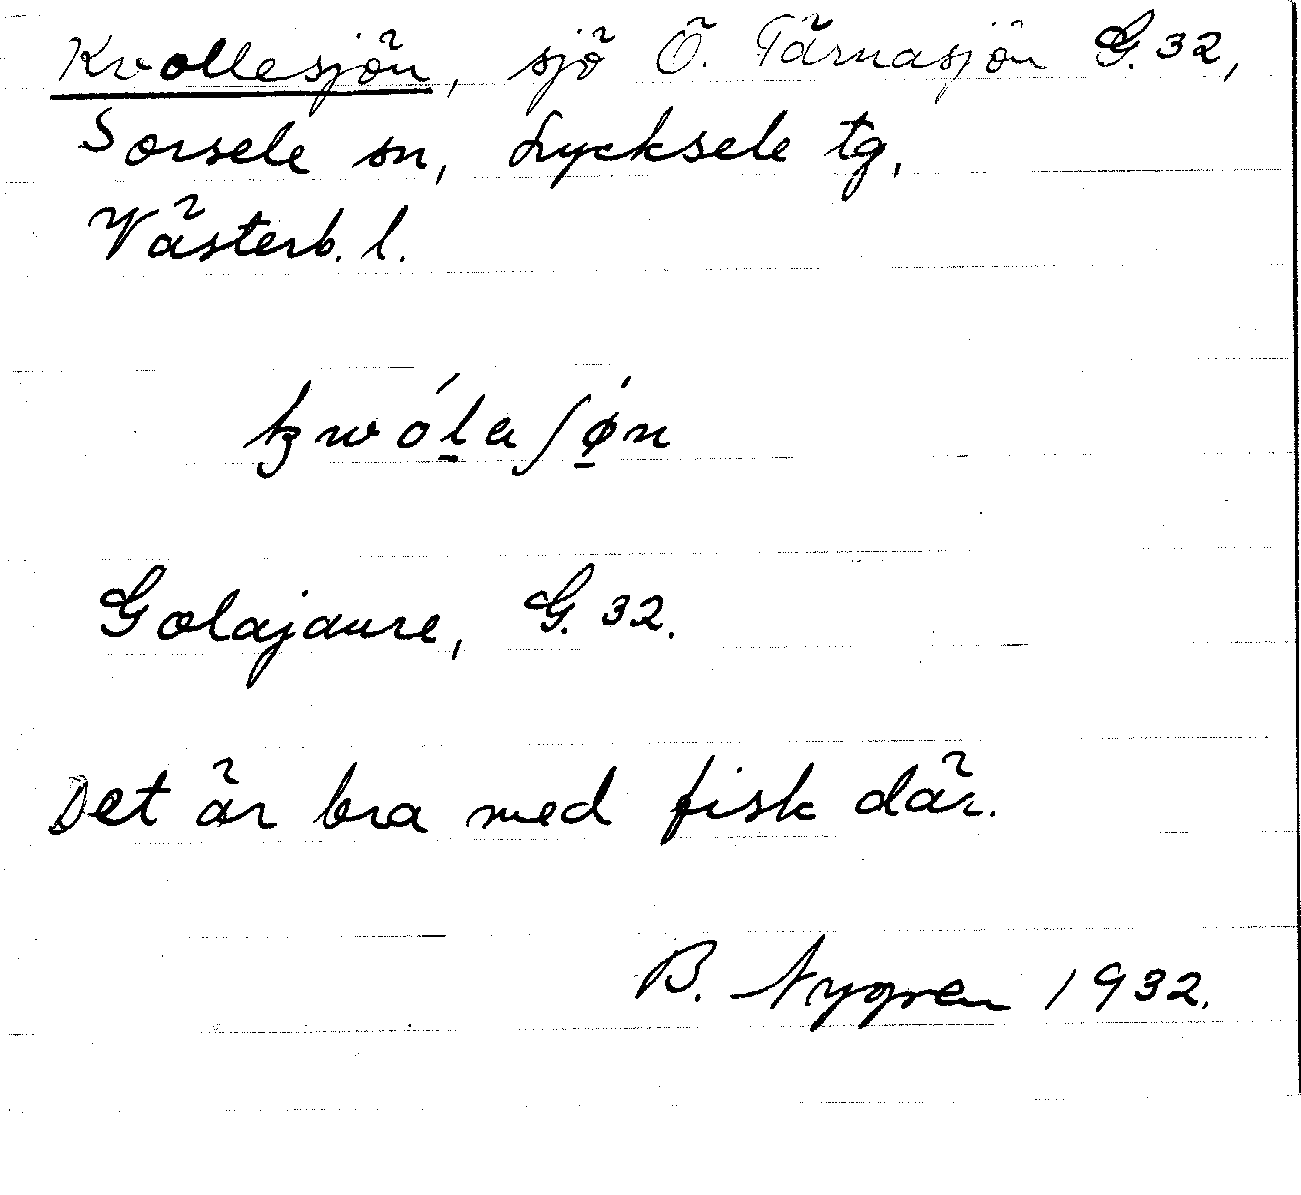 Kvollesjön, sjö Ö. Tärnasjön G. 32,
Sorsele sn, Lycksele tg,
Västerb. l.
Golajaure, G. 32.
Det är bra med fisk där.
B. Nygren 1932.